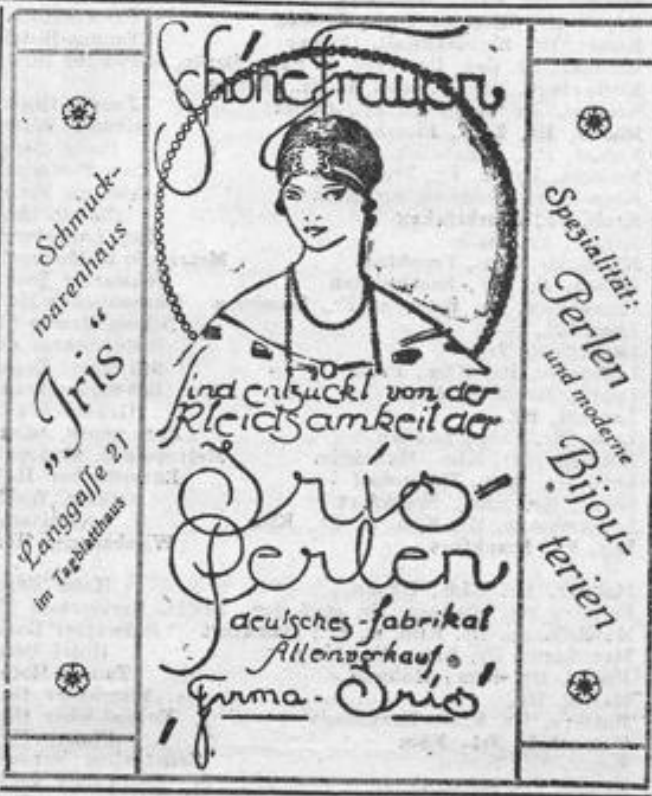 Schmuck-
warenhaus
„Iris“
Langgasse 21
im Tagblatthaus
Schöne Frauen
sind entzückt von der
Kleidsamkeit der
Iris-
Perlen
deutsches-fabrikat
Alleinverkauf
Firma-Iris
Spezialität:
Perlen
und moderne
Bijou-
terien